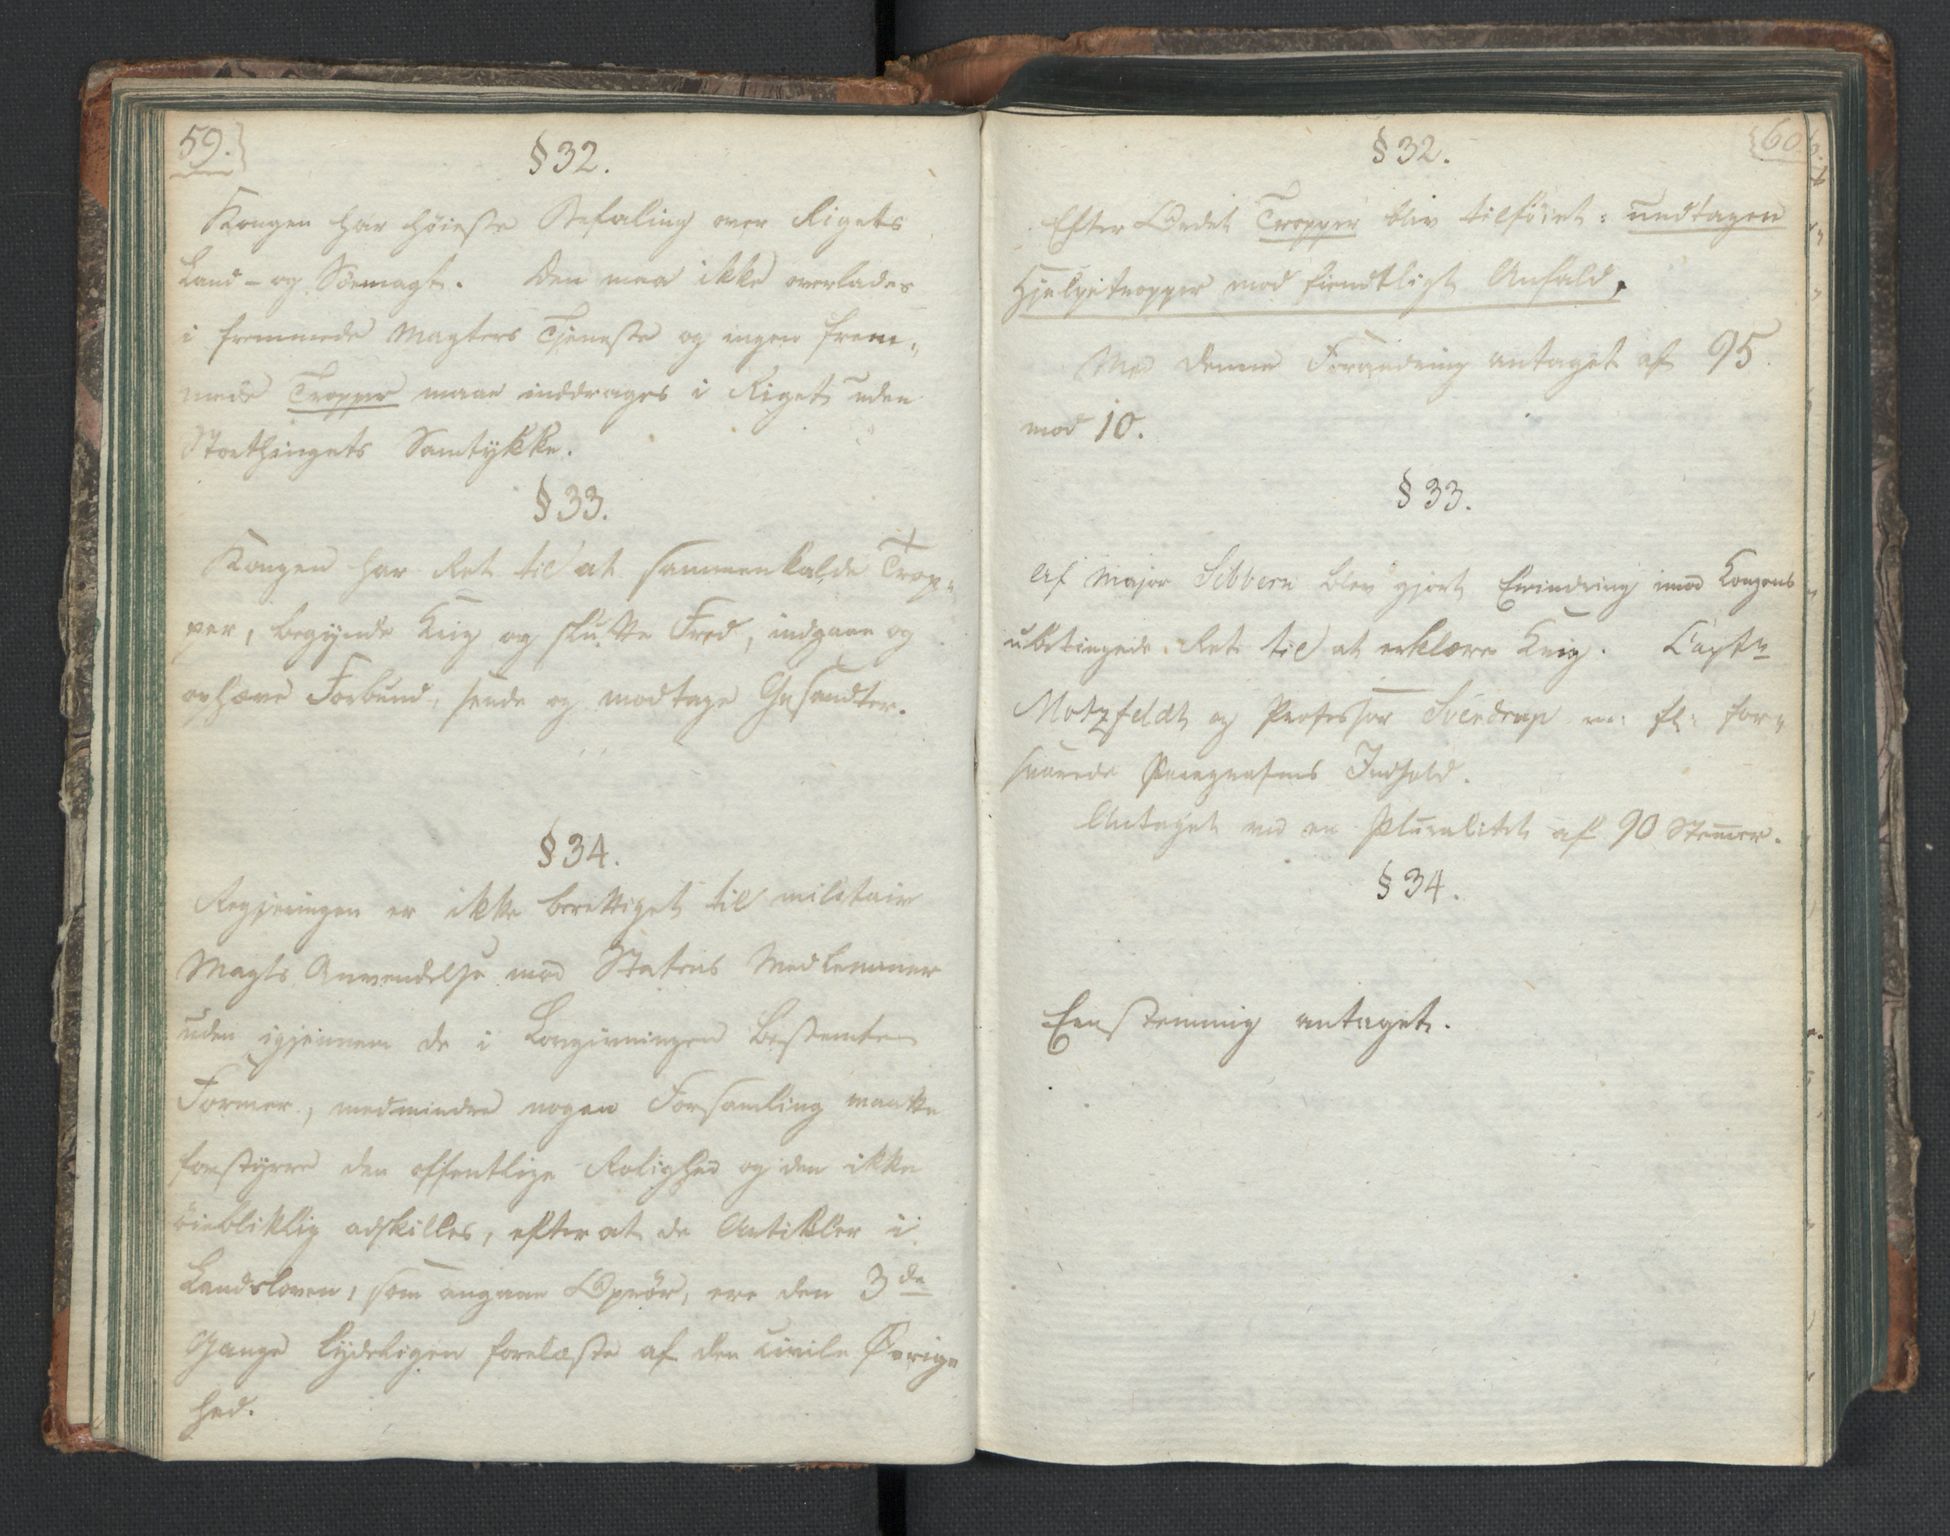 59.
§ 32.
Kongen har høieste Befaling over Rigets
Land- og Søemagt. Den maa ikke overlades
i fremmede Magters Tjeneste og ingen frem-
mede Tropper maae inddrages i Riget uden
Storthingets Samtykke.
§ 33.
Kongen har Ret til at sammenkalde Trop-
per, begynde Krig og slutte Fred, indgaae og
ophæve Forbund, sende og modtage Gesandter.
§ 34.
Regjeringen er ikke berettiget til militair
Magts Anvendelse mod Statens Medlemmer
uden igjennem de i Lovgivningen bestemte
Former, medmindre nogen Forsamling maatte
forstyrre den offentlige Rolighed og den ikke
øiebliklig adskilles, efter at de Artikler i
Landsloven, som angaae Oprør, ere den 3de
Gange lydeligen forelæste af den civile Øvrig-
hed.
60.
§ 32.
Efter Ordet Tropper blev tilføiet: undtagen
Hjelpetropper mod fiendtligt Anfald.
Med denne Forandring antaget af 95
mod 10.
§ 33.
Af Major Sibbern blev gjort Erindring imod Kongens
ubetingede Ret til at erklære Krig. Captn
Motzfeldt og Professor Sverdrup m: fl: for-
svarede Paragrafens Indhold.
Antaget ved en Pluralitet af 90 Stemer.
§ 34.
Eenstemmig antaget.